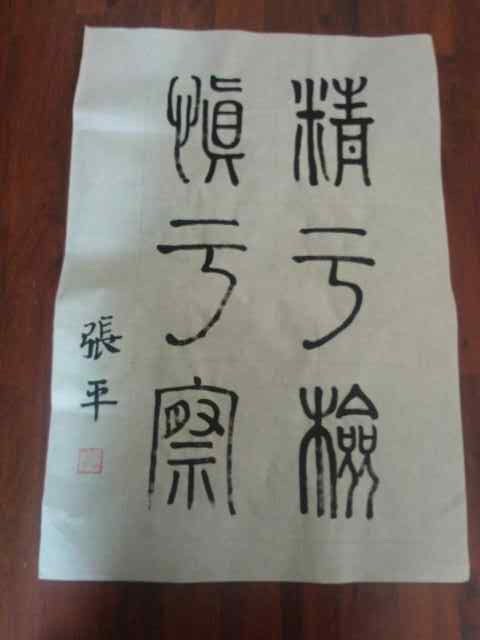 精于檢
慎于察
張平